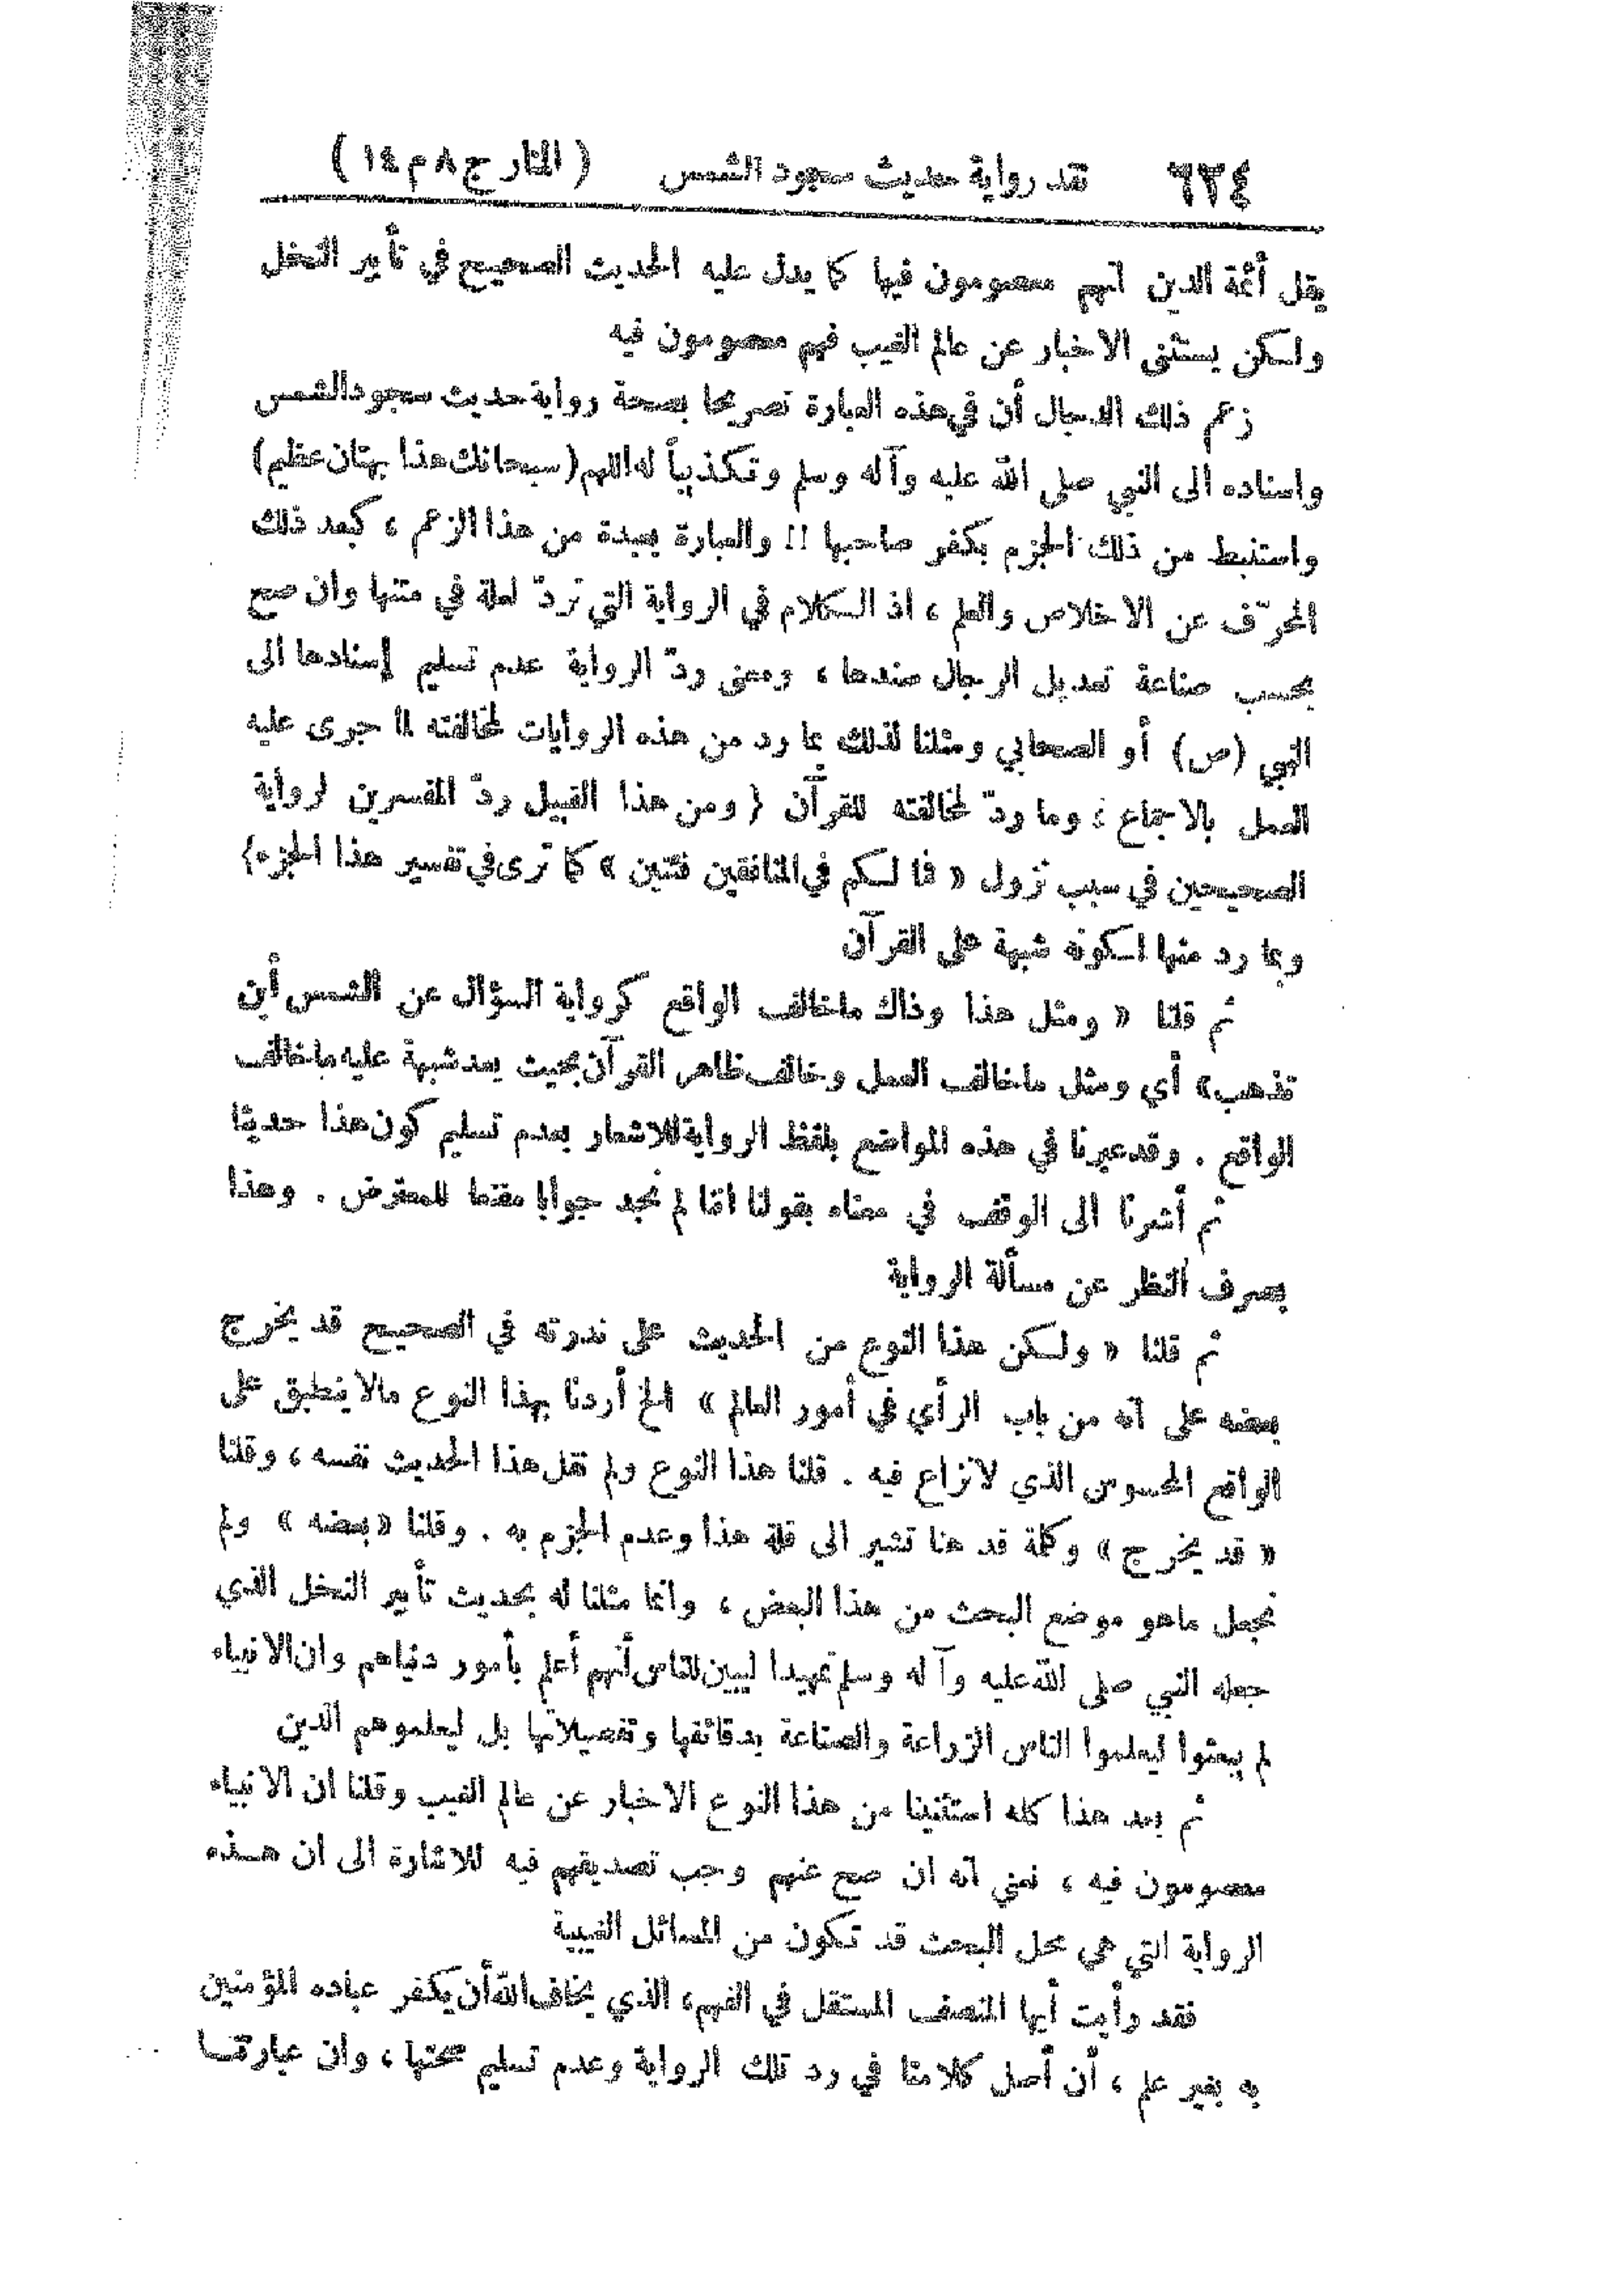 ٦٢٤ نقد رواية حديث سجود الشمس ( المنار ج ٨ م ١٤ )
يقل أئمة الدين انهم معصومون فيها كما يدل عليه الحديث الصحيح في تأبير النخل
ولكن يستثنى الاخبار عن عالم الغيب فهم معصومون فيه
زعم ذلك الدجال أن في هذه العبارة تصريحا بصحة رواية حديث سجود الشمس
واسناده الى النبي صلى الله عليه وآله وسلم وتكذيباً له اللهم (سبحانك هذا بهتان عظيم)
واستنبط من ذلك الجزم بكفر صاحبها !! والعبارة بعيدة من هذا الزعم ، كبعد ذلك
المحرّف عن الاخلاص والعلم ، اذ الكلام في الرواية التي تردّ لعلة في متنها وان صح
بحسب صناعة تعديل الرجال سندها ، ومعنى ردّ الرواية عدم تسليم إسنادها الى
النبي (ص) أو الصحابي ومثلنا لذلك بما رد من هذه الروايات لمخالفته لما جرى عليه
العمل بالاجماع ؛ وما ردّ لمخالفته للقرآن ( ومن هذا القبيل ردّ المفسرين لرواية
الصحيحين في سبب نزول « فما لكم في المنافقين فئتين » كما ترى في تفسير هذا الجزء)
وبما رد منها لكونه شبهة على القرآن
ثم قلنا « ومثل هذا وذاك ماخالف الواقع كرواية السؤال عن الشمس أين
تذهب» أي ومثل ماخالف العمل وخالف ظاهر القرآن بحيث يعد شبهة عليه ماخالف
الواقع . وقد عبرنا في هذه المواضع بلفظ الرواية للاشعار بعدم تسليم كون هذا حديثا
ثم أشرنا الى الوقف في معناه بقولنا اننا لم نجد جوابا مقنعا للمعترض . وهذا
بصرف النظر عن مسألة الرواية
ثم قلنا « ولكن هذا النوع من الحديث على ندرته في الصحيح قد يخرج
بعضه على انه من باب الرأي في أمور العالم » الخ أردنا بهذا النوع مالا ينطبق على
الواقع المحسوس الذي لانزاع فيه . قلنا هذا النوع ولم نقل هذا الحديث نفسه ، وقلنا
« قد يخرج » وكلمة قد هنا تشير الى قلة هذا وعدم الجزم به . وقلنا « بعضه » ولم
نجعل ماهو موضع البحث من هذا البعض ، وانما مثلنا له بحديث تأبير النخل الذي
جعله النبي صلى الله عليه وآله وسلم تمهيدا ليبين للناس أنهم أعلم بأمور دنياهم وان الانبياء
لم يبعثوا ليعلموا الناس الزراعة والصناعة بدقائقها وتفصيلاتها بل ليعلموهم الدين
ثم بعد هذا كله استثنينا من هذا النوع الاخبار عن عالم الغيب وقلنا ان الانبياء
معصومون فيه ، نعني انه ان صح عنهم وجب تصديقهم فيه للاشارة الى ان هـذه
الرواية التي هي محل البحث قد تكون من المسائل الغيبية
فقد رأيت أيها المنصف المستقل في الفهم، الذي يخاف الله أن يكفر عباده المؤمنين
به بغير علم ، أن أصل كلامنا في رد تلك الرواية وعدم تسليم صحتها ، وان عبارتنـا